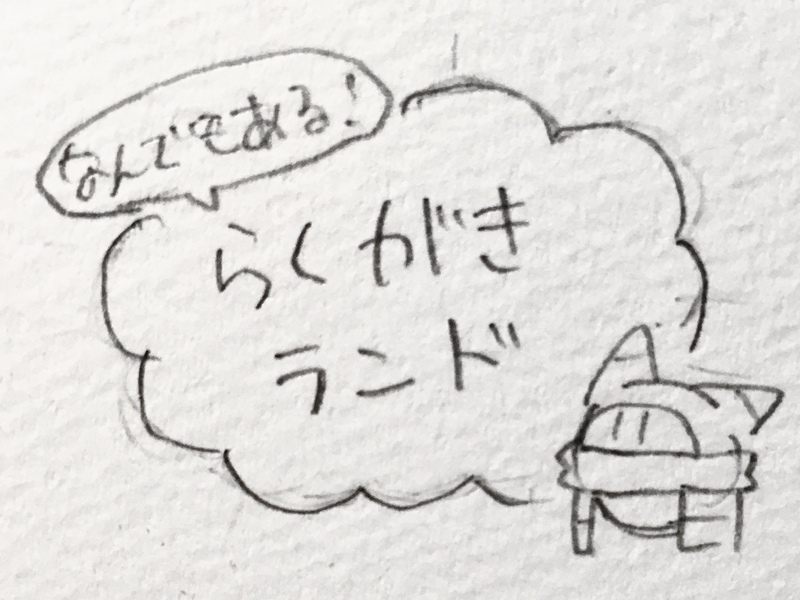 なんでもある!
らくがき
ランド